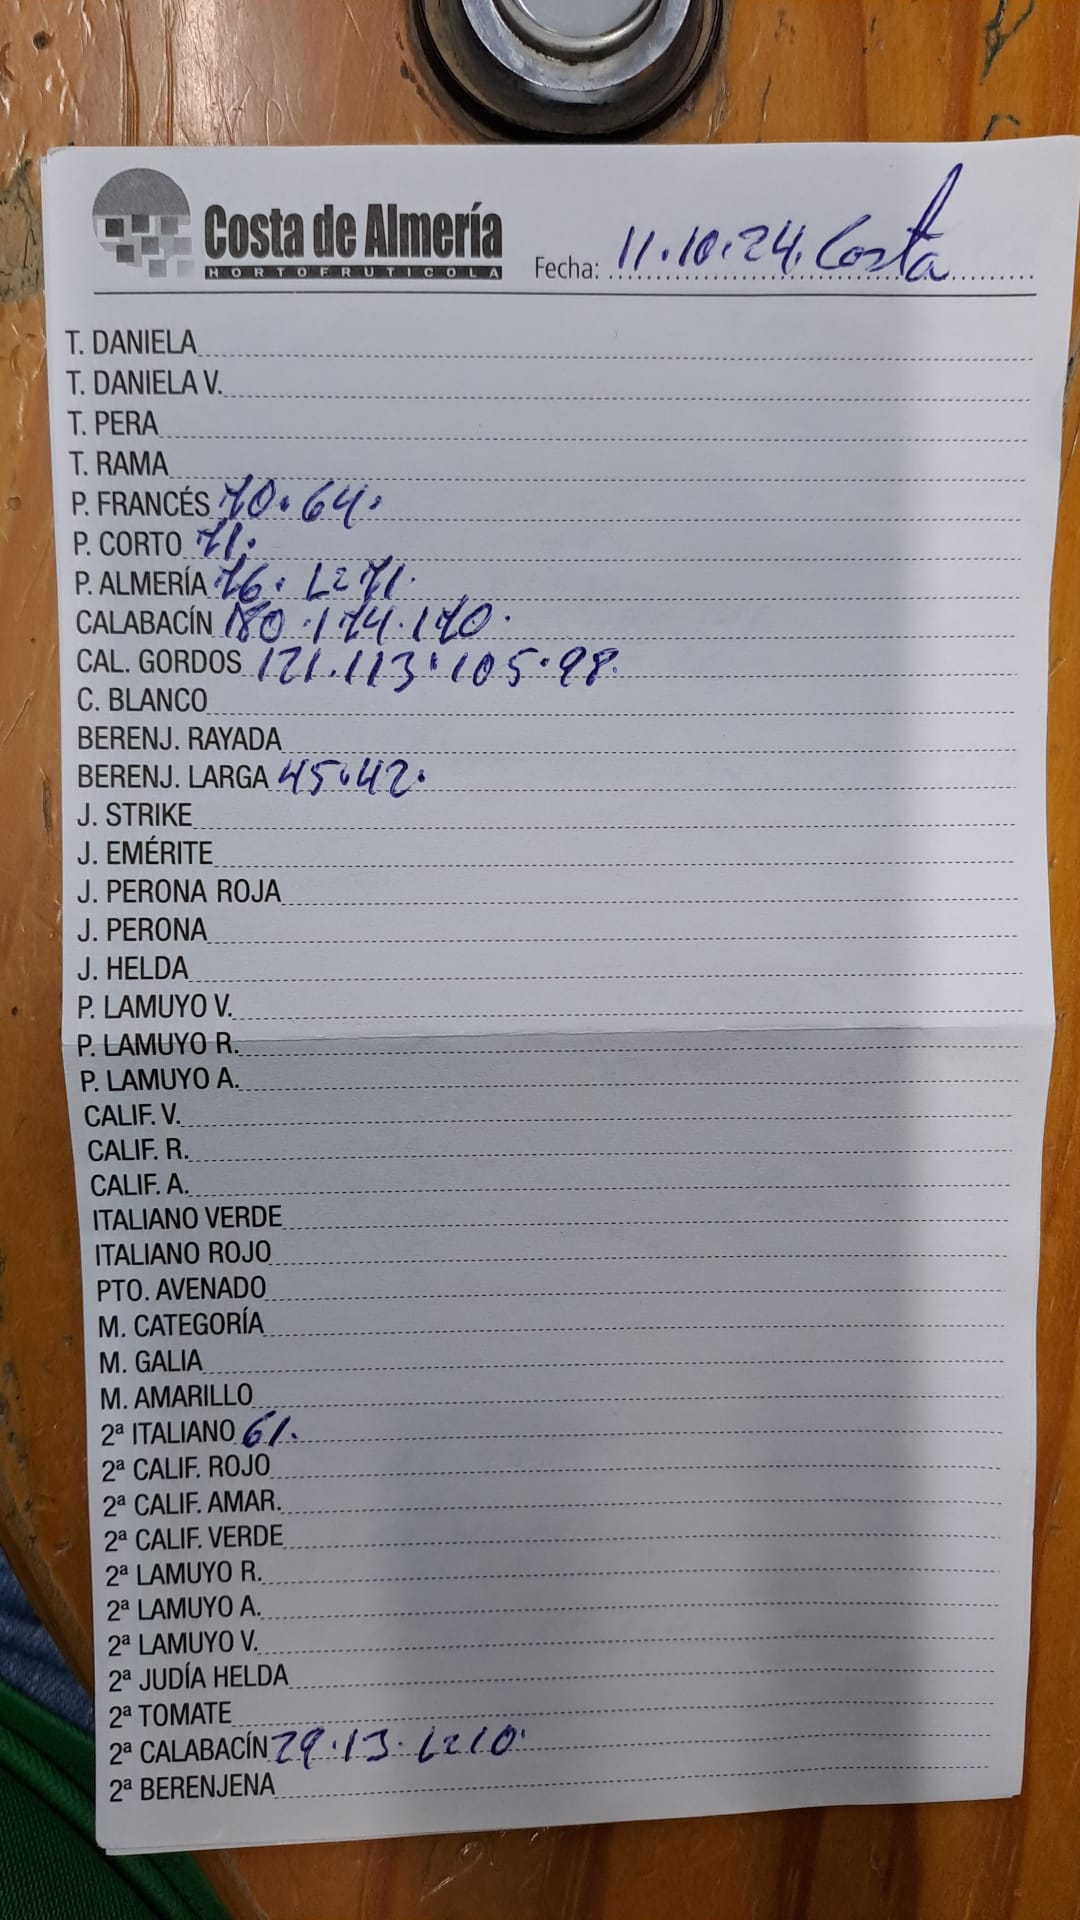 Costa de Almería
HORTOFRUTICOLA
Fecha: 11.10.24. Costa
T. DANIELA
T. DANIELA V.
T. PERA
T. RAMA
P. FRANCÉS 70. 64.
P. CORTO 71.
P. ALMERÍA 76. L=71.
CALABACÍN 180.174.170.
CAL. GORDOS 121.113.105.98.
C. BLANCO
BERENJ. RAYADA
BERENJ. LARGA 45.42.
J. STRIKE
J. EMÉRITE
J. PERONA ROJA
J. PERONA
J. HELDA
P. LAMUYO V.
P. LAMUYO R.
P. LAMUYO A.
CALIF. V.
CALIF. R.
CALIF. A.
ITALIANO VERDE
ITALIANO ROJO
PTO. AVENADO
M. CATEGORÍA
M. GALIA
M. AMARILLO
2ª ITALIANO 61.
2ª CALIF. ROJO
2ª CALIF. AMAR.
2ª CALIF. VERDE
2ª LAMUYO R.
2ª LAMUYO A.
2ª LAMUYO V.
2ª JUDÍA HELDA
2ª TOMATE
2ª CALABACÍN 29.13. L=10.
2ª BERENJENA